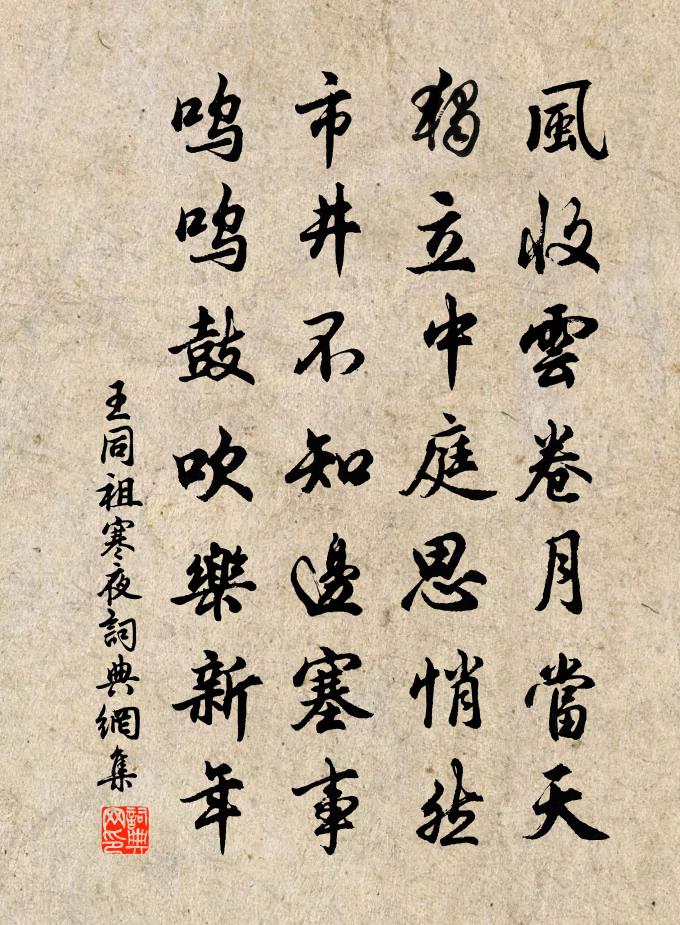 風收雲卷月當天
獨立中庭思悄然
市井不知邊塞事
嗚嗚鼓吹樂新年
王同祖寒夜詞典網集
詞典網印